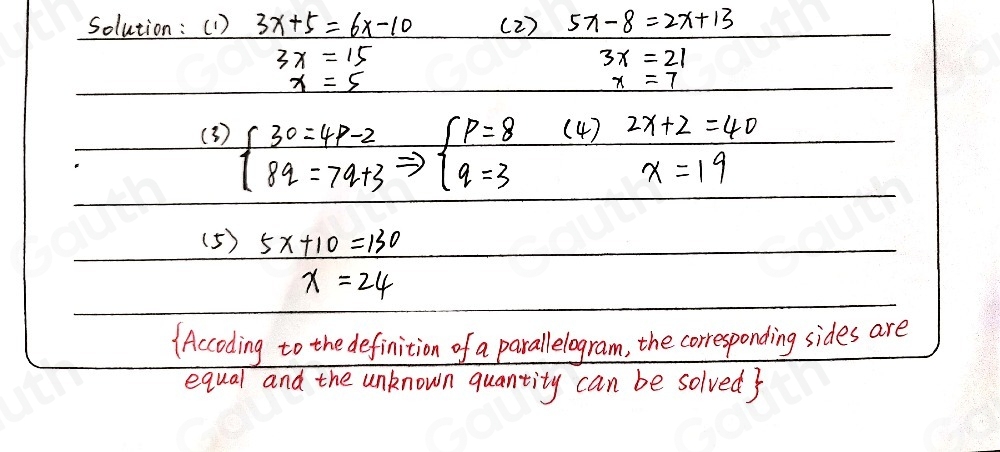 Solution: (1) 3x+5=6x-10 (2) 5x-8=2x+13
3x=15 3x=21
x=5 x=7
(3) { 30=4P-2 ⇒ { P=8 (4) 2x+2=40
8q=7q+3 q=3 x=19
(5) 5x+10=130
x=24
{Accoding to the definition of a parallelogram, the corresponding sides are
equal and the unknown quantity can be solved}
Gauth